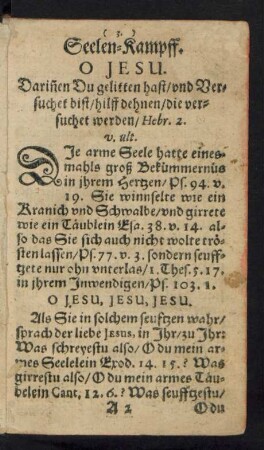 ( 3. )
Seelen-Kampff.
O JESU.
Dariñen Du gelitten hast/ vnd Ver-
suchet bist/ hilff dehnen/ die ver-
suchet werden/ Hebr. 2.
v. ult.
DIe arme Seele hatte eines-
mahls groß Bekümmernüs
in jhrem Hertzen/ Ps. 94. v.
19. Sie winnselte wie ein
Kranich vnd Schwalbe/ vnd girrete
wie ein Täublein Esa. 38. v. 14. al-
so das Sie sich auch nicht wolte trö-
sten lassen/ Ps. 77. v. 3. sondern seuff-
tzete nur ohn vnterlas/ 1. Thes. 5. 17.
in jhrem Jnwendigen/ Ps. 103. 1.
O JESU, JESU, JESU.
Als Sie in solchem seufftzen wahr/
sprach der liebe JESUS, in Jhr/ zu Jhr:
Was schreyestu also/ O du mein ar-
mes Seelelein Exod. 14. 15.? Was
girrestu also/ O du mein armes Täu-
belein Cant. 12. 6.? Was seufftzestu/
A 2 O du